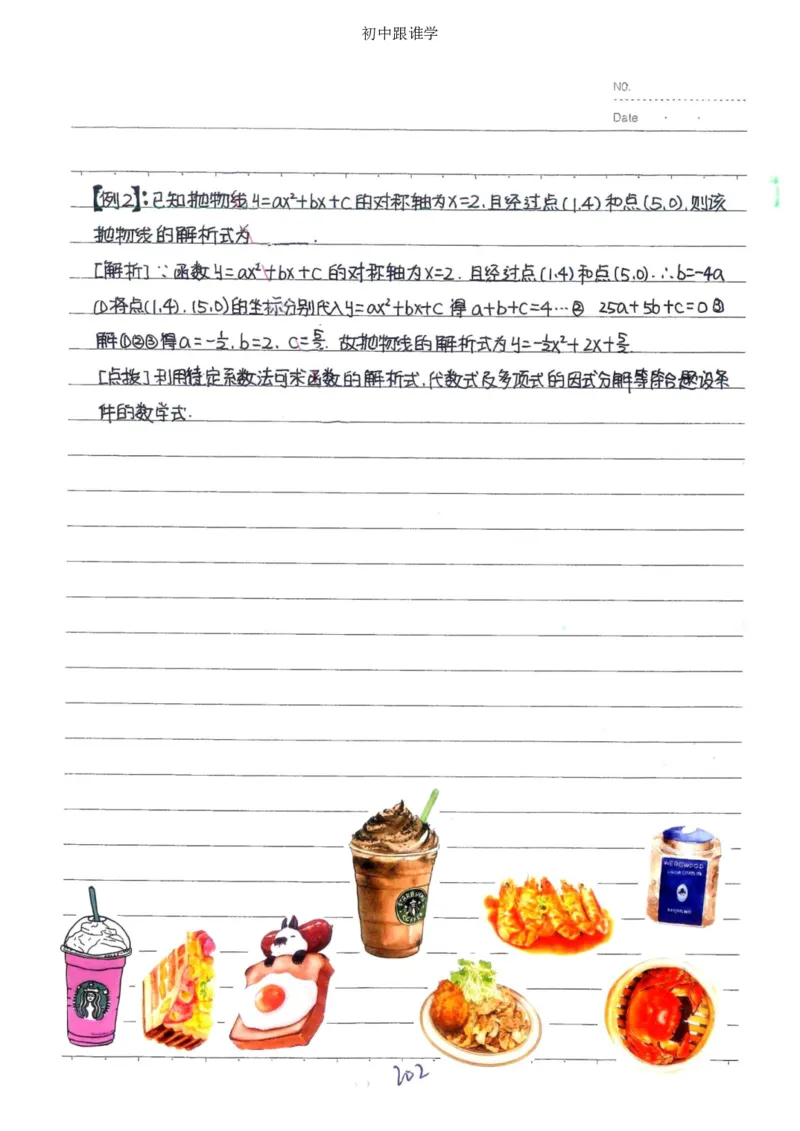 初中跟谁学
NO.
Date
【例2】:已知抛物线y=ax²+bx+c的对称轴为x=2,且经过点(1,4)和点(5,0),则该
抛物线的解析式为____.
[解析]∵函数y=ax²+bx+c的对称轴为x=2.且经过点(1,4)和点(5,0).∴b=-4a
①将点(1,4).(5,0)的坐标分别代入y=ax²+bx+c得a+b+c=4…② 25a+5b+c=0③
解①②③得a=-½,b=2,c=5/2.故抛物线的解析式为y=-½x²+2x+5/2.
[点拨]利用待定系数法可求函数的解析式,代数式及多项式的因式分解等符合题设条
件的数学式.
STARBUCKS
COFFEE
WEDGWOOD
202